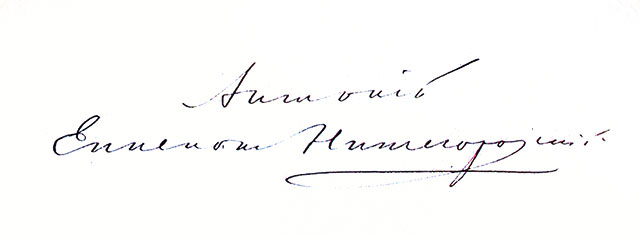 Антоній
Епископъ Нижегородскій